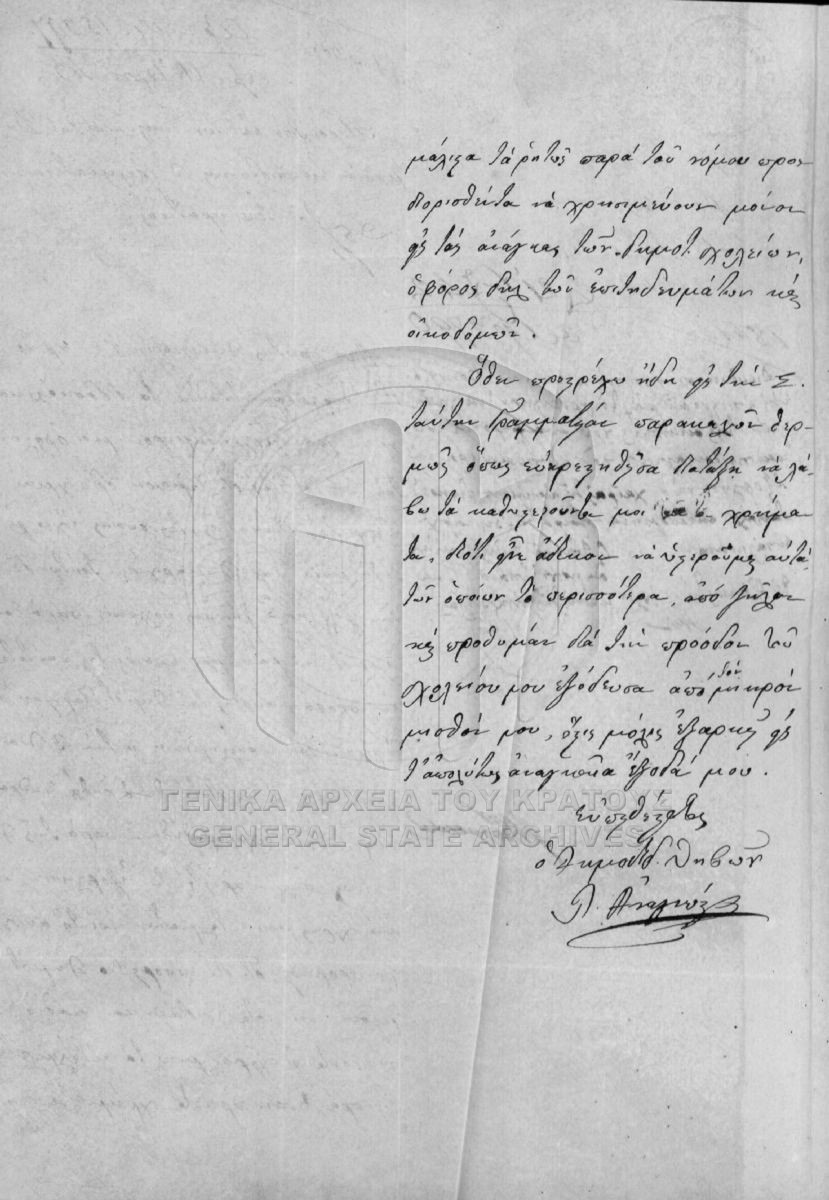 μάλιστα τὰ ῥητῶς παρὰ τοῦ νόμου προσ
διορισθέντα νὰ χρησιμεύουν μόνον
εἰς τὰς ἀνάγκας τῶν δημοτ. σχολείων,
ὁ φόρος δηλ. τῶν ἐπιτηδευμάτων καὶ
οἰκοδομῶν.
Ὅθεν προστρέχω ἤδη εἰς τὴν Σ.
ταύτην Γραμματείαν παρακαλῶν θερ-
μῶς ὅπως εὐαρεστηθεῖσα διατάξῃ νὰ λά-
βω τὰ καθυστεροῦντά μοι χρήμα
τα, διότι εἶναι ἄδικον νὰ ὑστεροῦμαι αὐτὰ
τῶν ὁποίων τὰ περισσότερα, ἀπὸ ζῆλον
καὶ προθυμίαν διὰ τὴν πρόοδον τοῦ
σχολείου μου ἐξόδευσα ἀπὸ τὸν μικρόν
μισθόν μου, ὅστις μόλις ἐξαρκεῖ εἰς
τ' ἀπολύτως ἀναγκαῖα ἔξοδά μου.
εὐπειθέστατος
ὁ δημοδιδ. Θηβῶν
ΓΕΝΙΚΑ ΑΡΧΕΙΑ ΤΟΥ ΚΡΑΤΟΥΣ
GENERAL STATE ARCHIVES